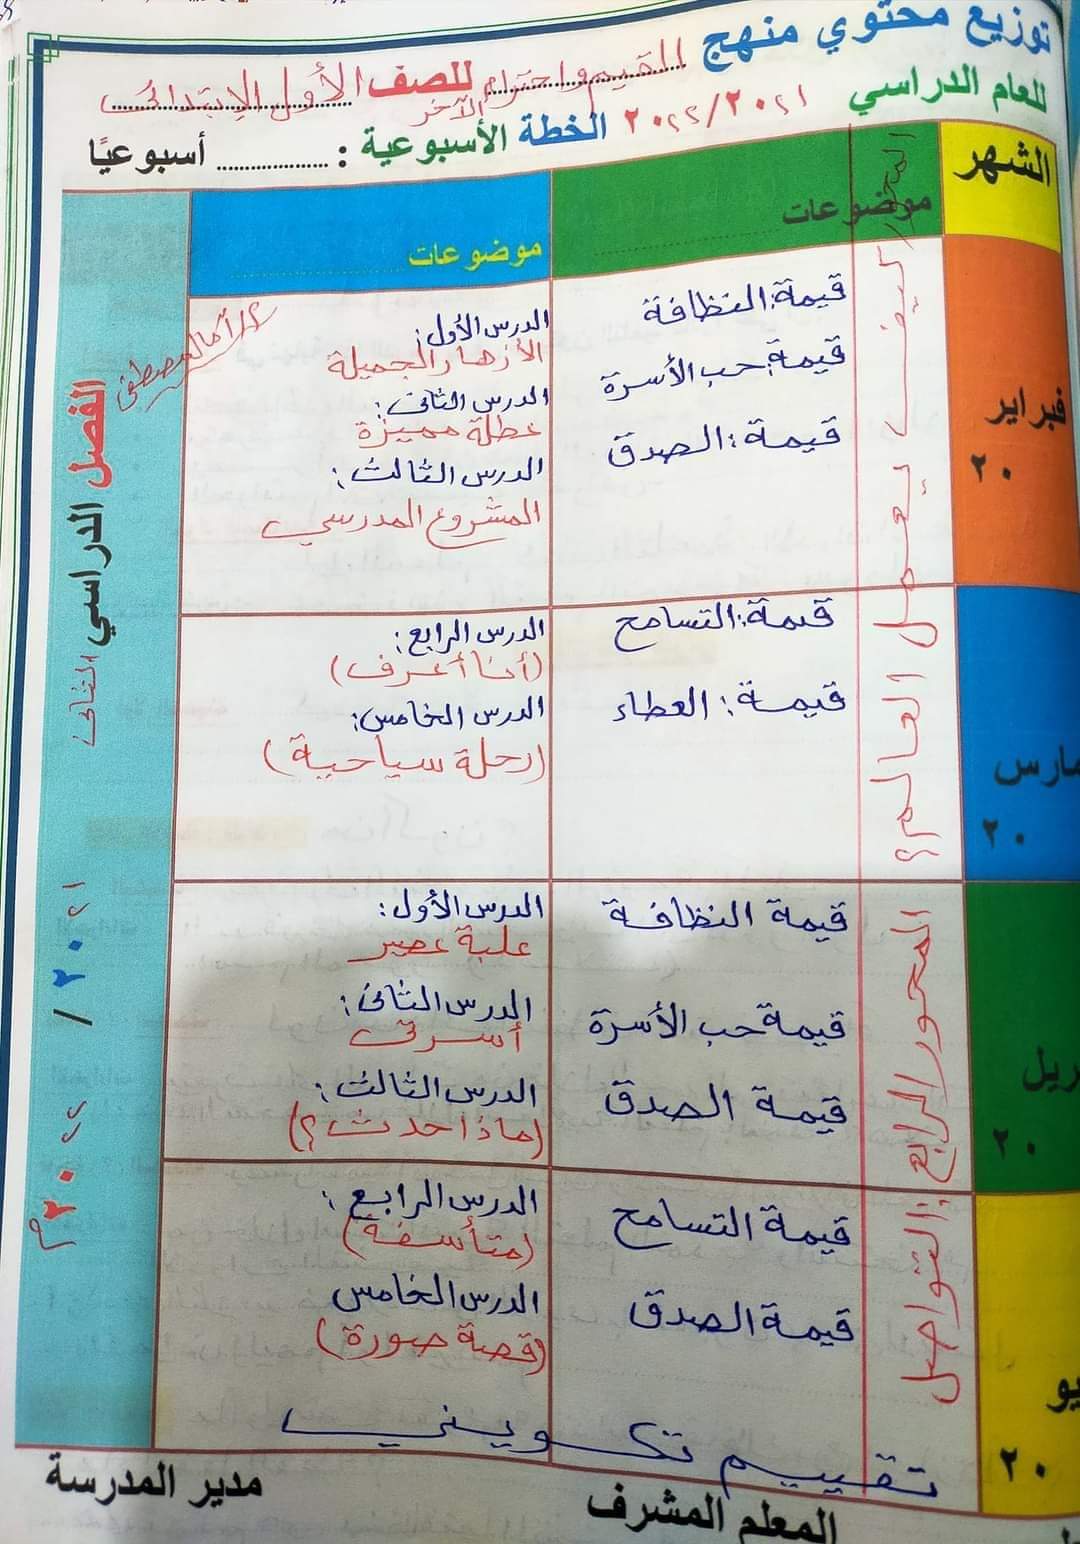 توزيع محتوي منهج القيم واحترام الآخر للصف الأول الابتدائى
للعام الدراسي ٢٠٢١/٢٠٢٢ الخطة الأسبوعية : .......... أسبوعيًا
الشهر
موضوعات
موضوعات
المحور
كيف يعمل العالم؟
فبراير
٢٠
قيمة: النظافة
قيمة: حب الأسرة
قيمة: الصدق
الدرس الأول:
الأزهار الجميلة
الدرس الثانى:
عطلة مميزة
الدرس الثالث:
المشروع المدرسي
أ/ آمال مصطفى
مارس
٢٠
قيمة: التسامح
قيمة: العطاء
الدرس الرابع:
(أنا أعرف)
الدرس الخامس:
(رحلة سياحية)
المحور الرابع: التواصل
ريل
٢٠
قيمة النظافة
قيمة حب الأسرة
قيمة الصدق
الدرس الأول:
علبة عصير
الدرس الثانى:
أسرتى
الدرس الثالث:
(ماذا حدث؟)
يو
٢٠
قيمة التسامح
قيمة الصدق
الدرس الرابع:
(متأسفة)
الدرس الخامس
(قصة صورة)
تقييم تكويني
الفصل الدراسي الثانى ٢٠٢١ / ٢٠٢٢م
المعلم المشرف
مدير المدرسة